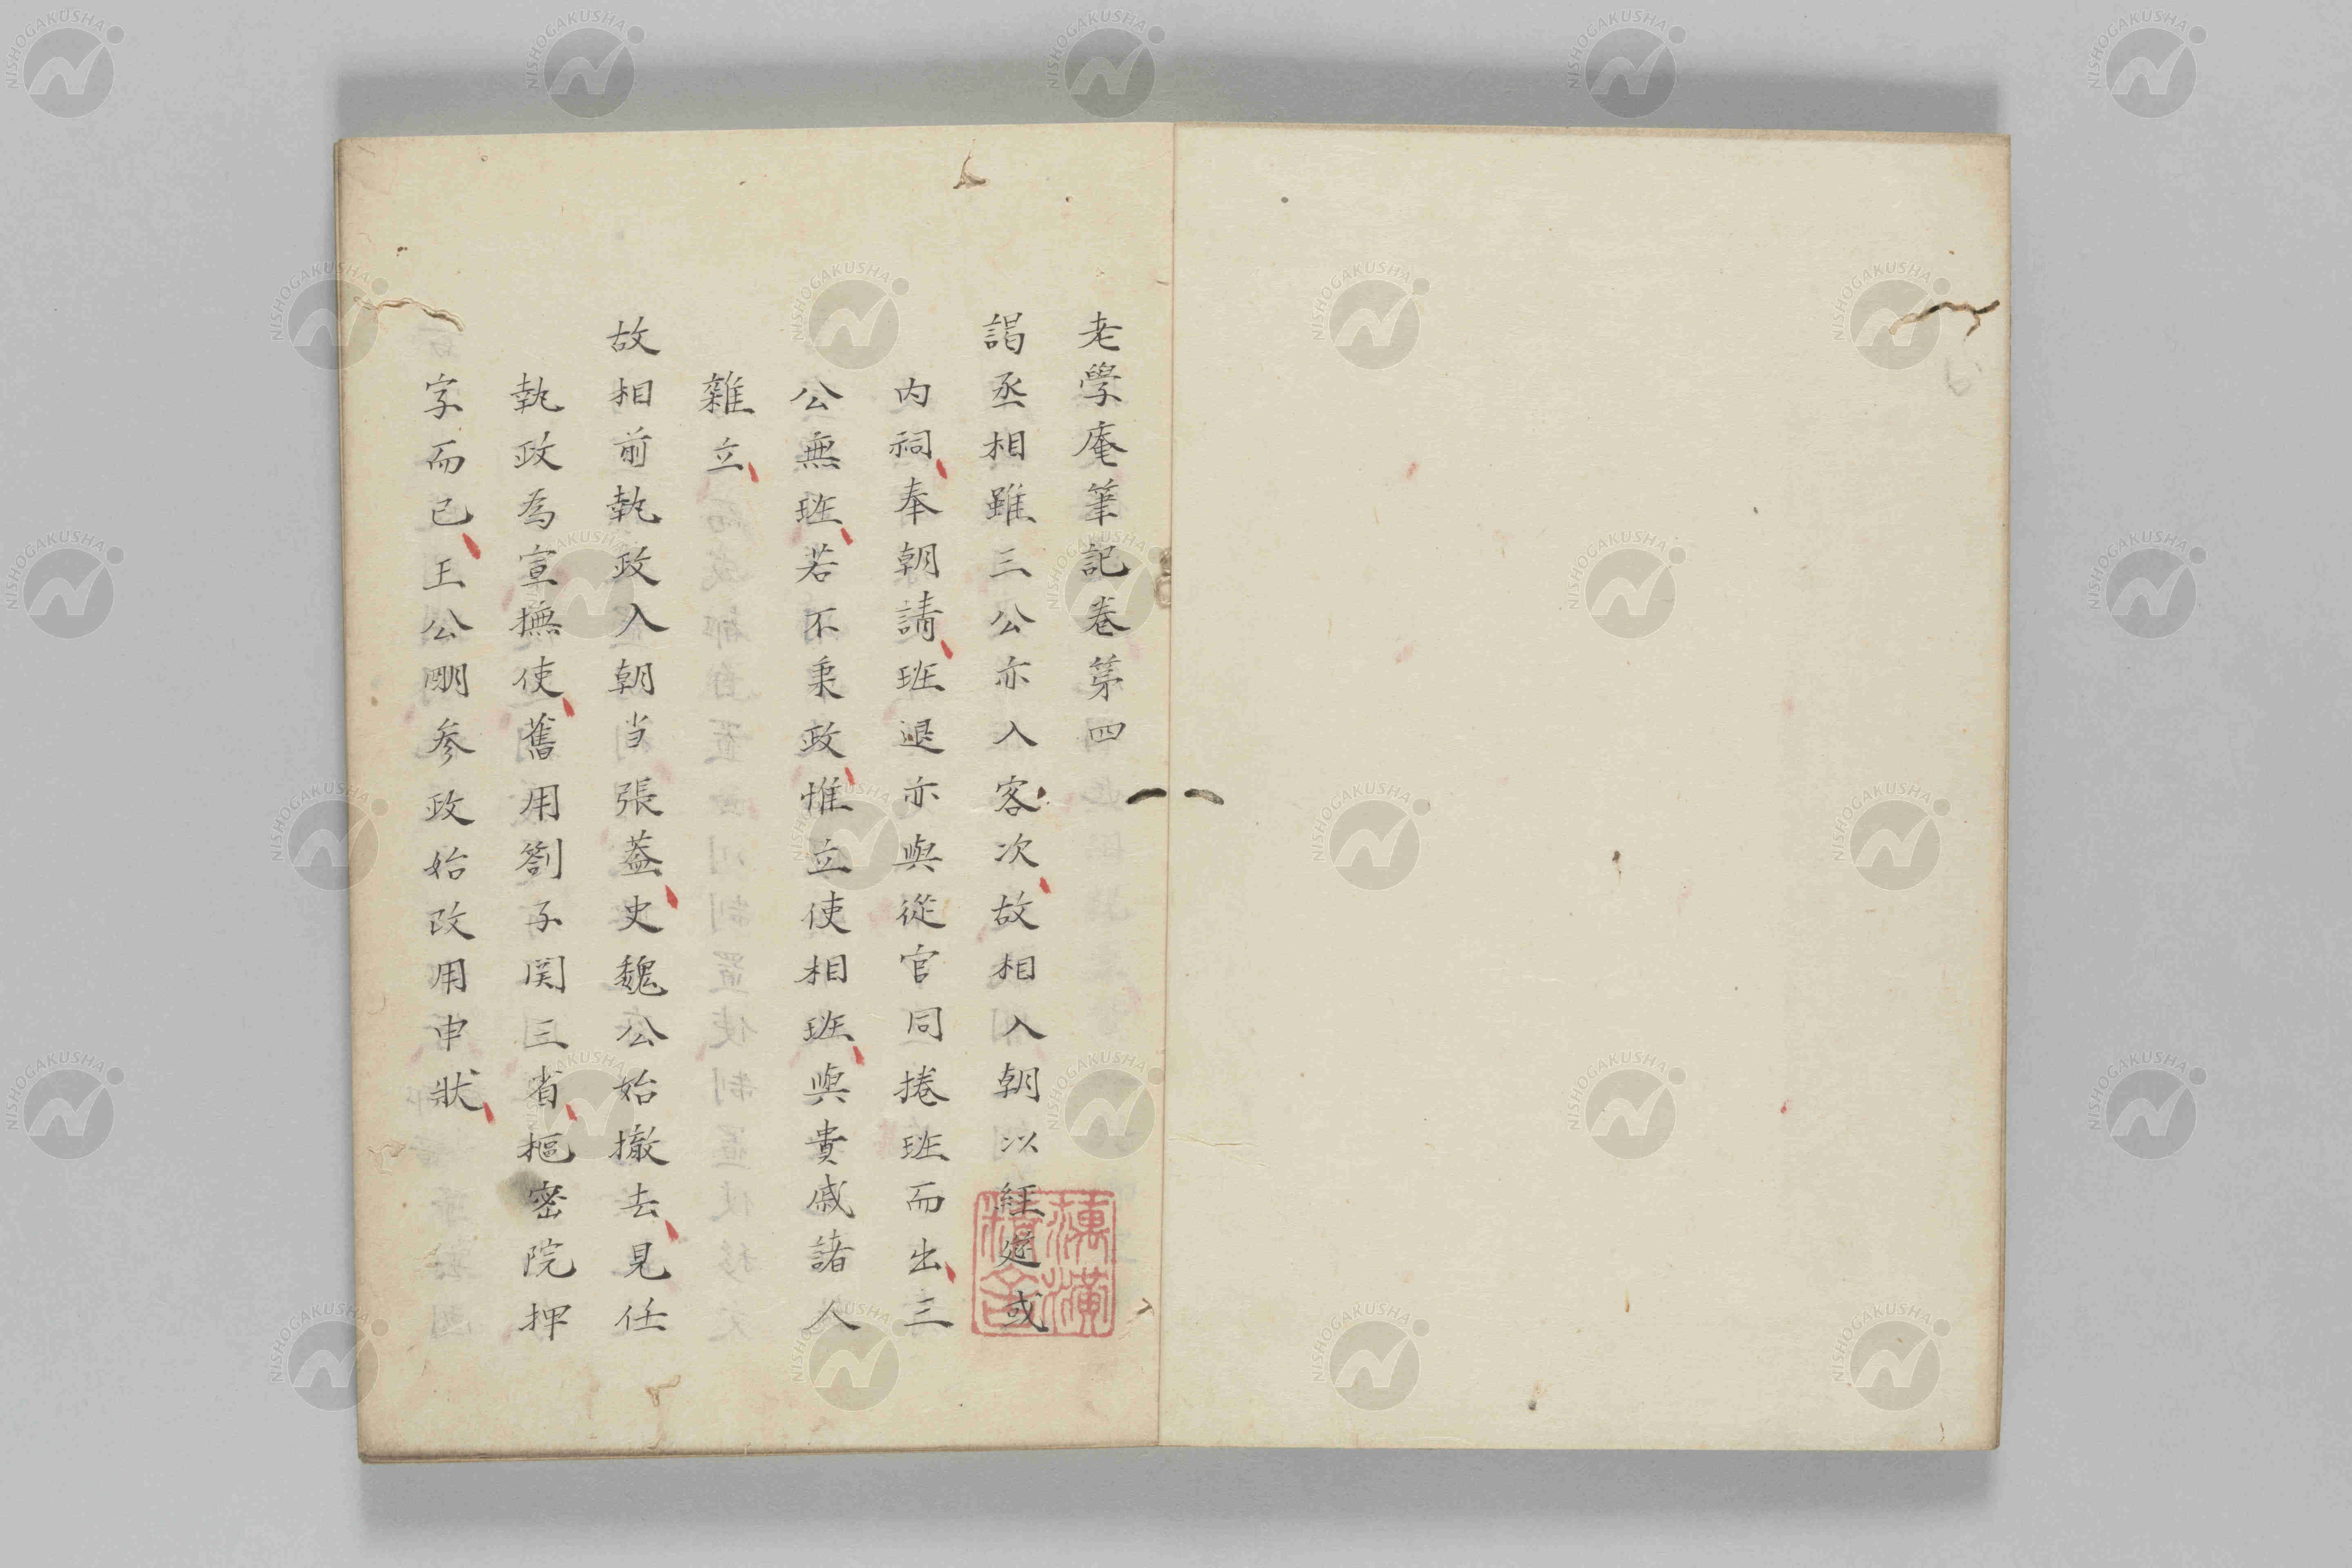 老學庵筆記卷第四
謁丞相雖三公亦入客次故相入朝以経筵或
内祠奉朝請班退亦與從官同捲班而出三
公無班若不秉政惟立使相班與貴戚諸人
雜立
故相前執政入朝当張蓋史魏公始撤去見任
執政為宣撫使舊用劄子関三省樞密院押
字而已王公剛参政始改用申狀
NISHOGAKUSHA